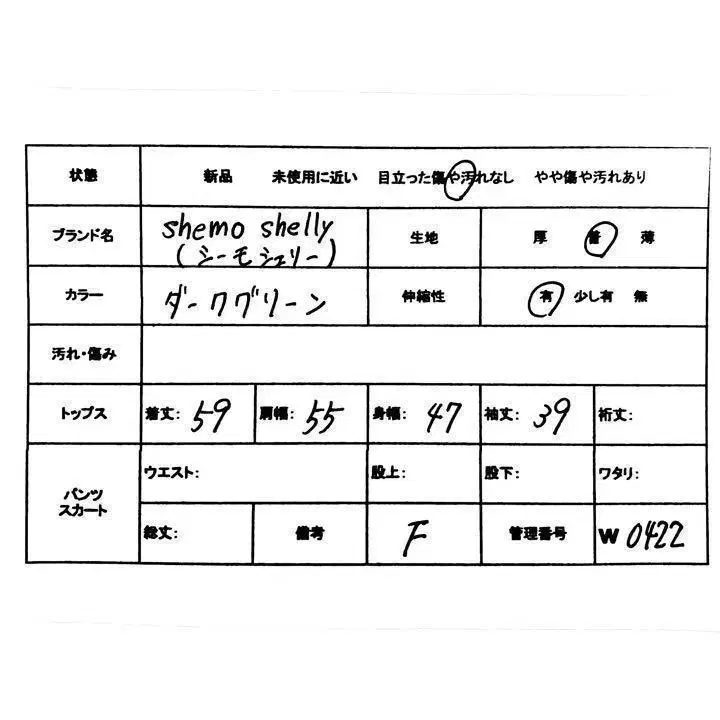 状態 新品 未使用に近い 目立った傷や汚れなし やや傷や汚れあり
ブランド名 shemo shelly 生地 厚 普 薄
(シーモシェリー)
カラー ダークグリーン 伸縮性 有 少し有 無
汚れ・傷み
トップス 着丈: 59 肩幅: 55 身幅: 47 袖丈: 39 裄丈:
パンツ スカート ウエスト: 股上: 股下: ワタリ:
総丈: 備考 F 管理番号 W 0422